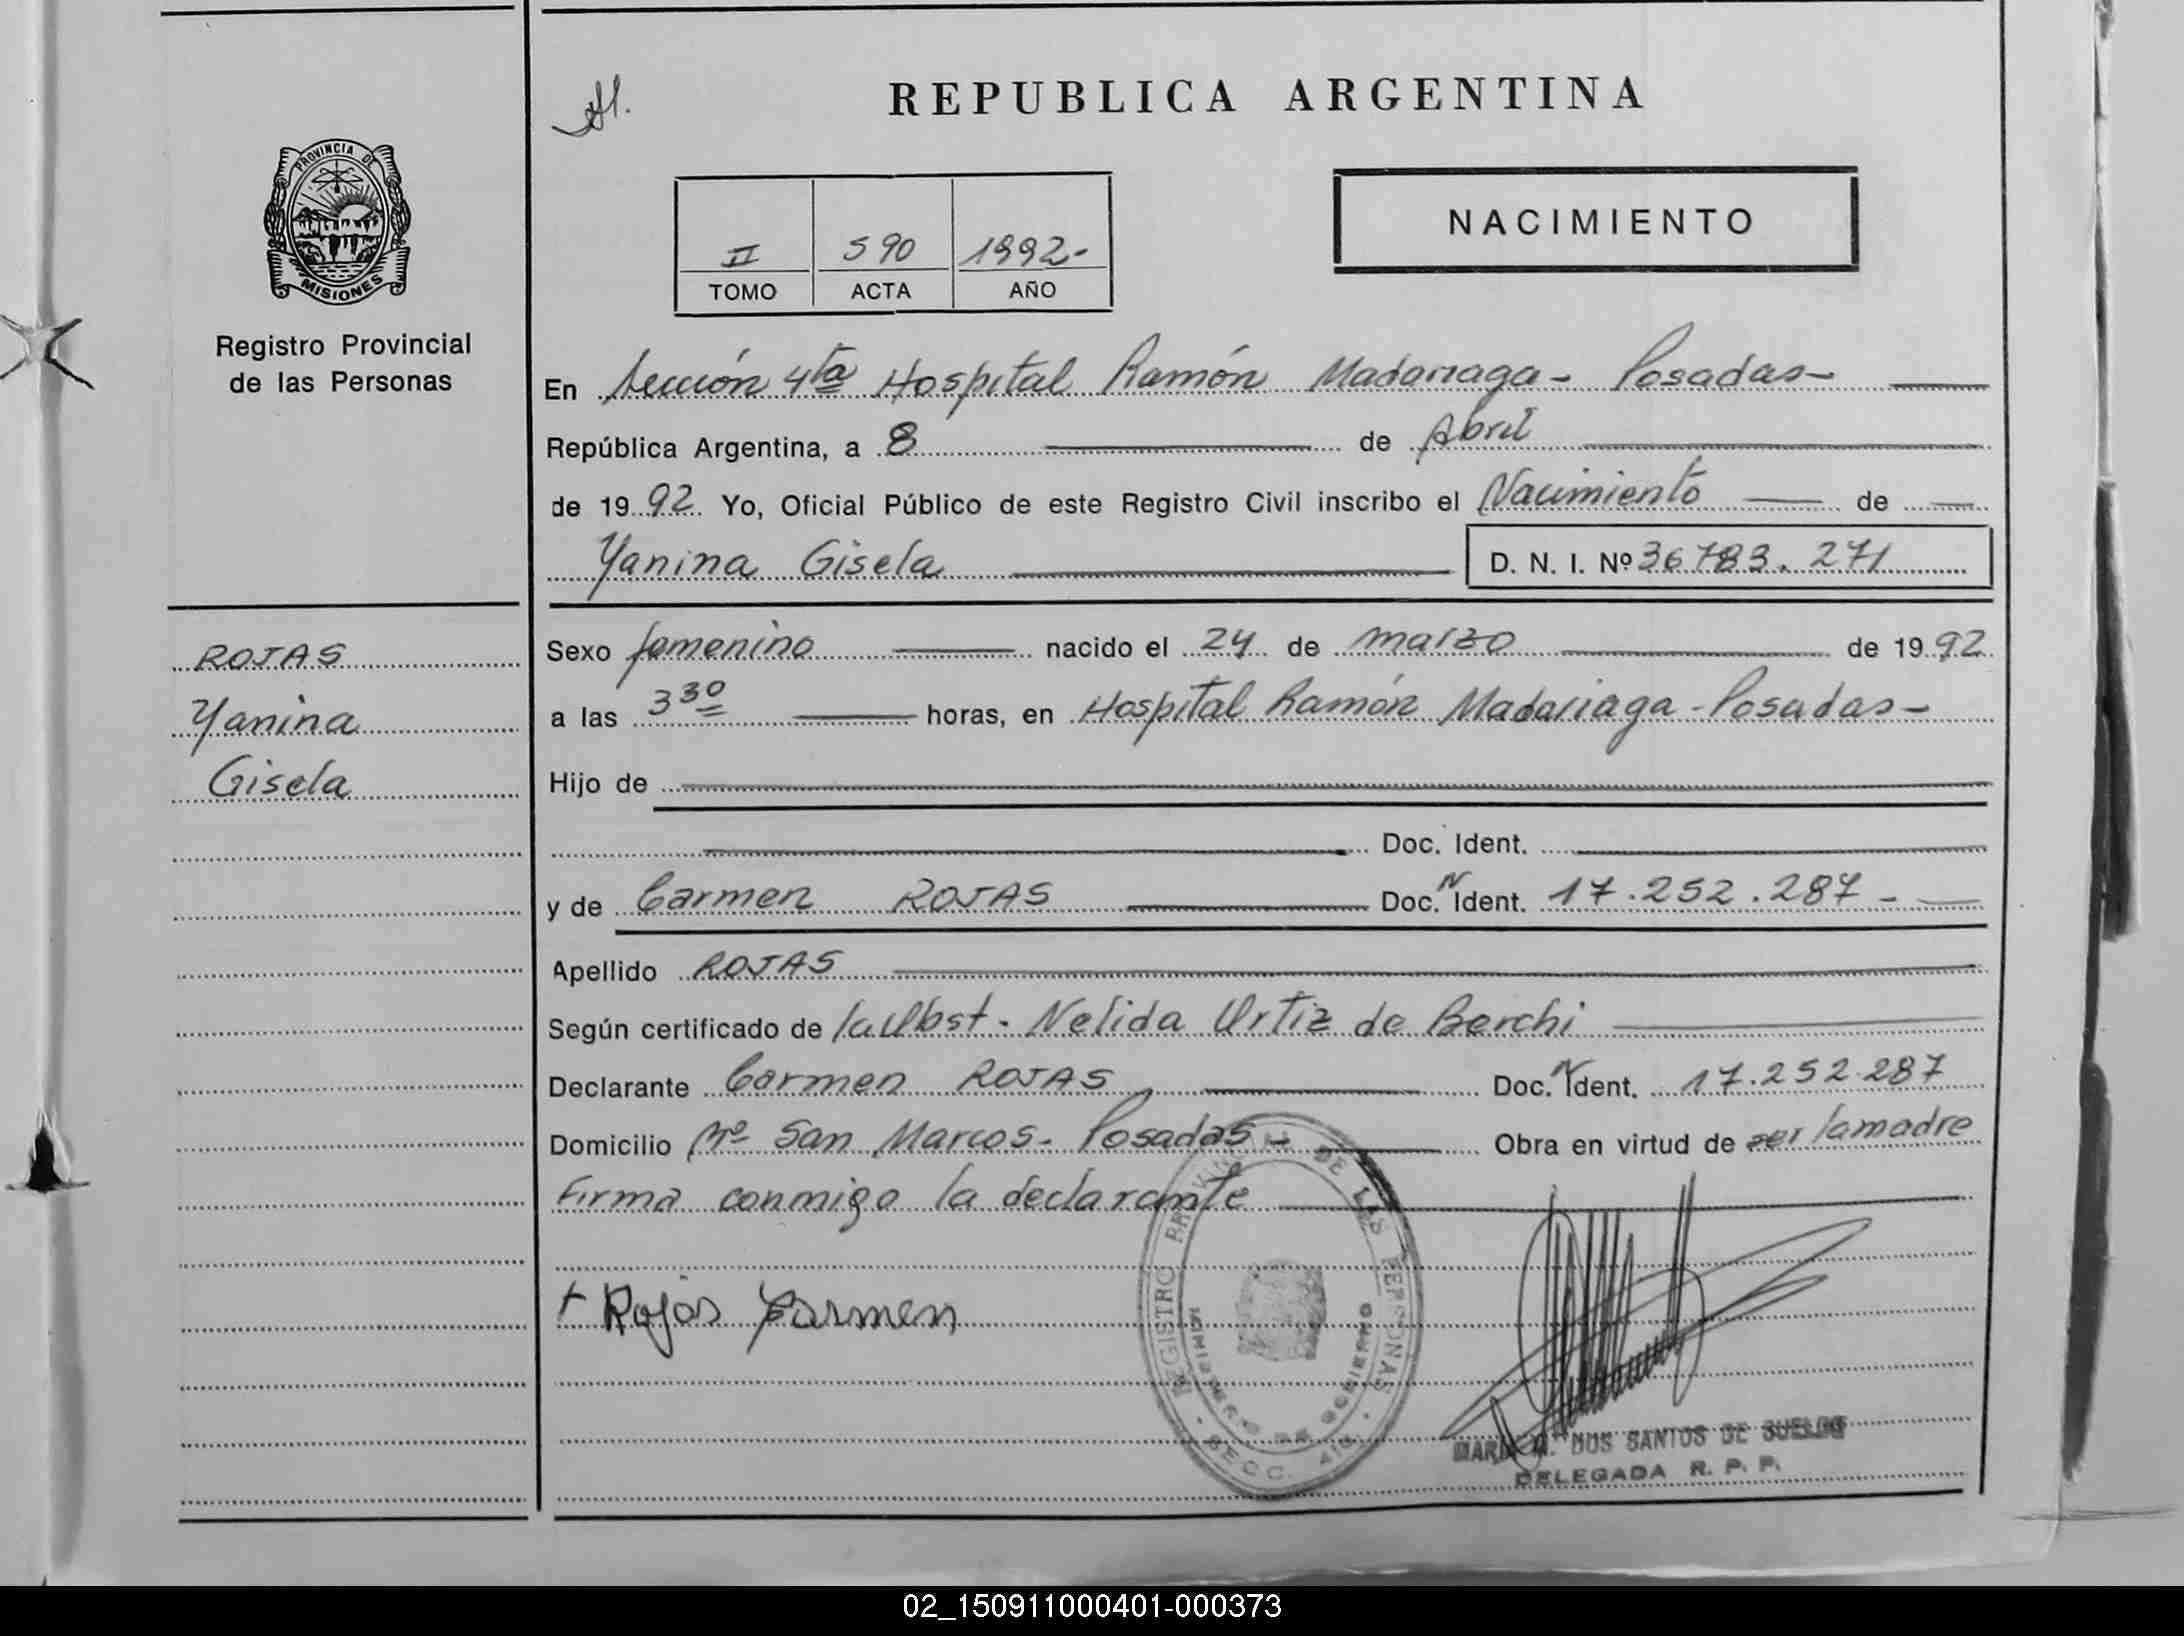 REPUBLICA ARGENTINA
PROVINCIA DE
MISIONES
Registro Provincial
de las Personas
NACIMIENTO
II 590 1992-
TOMO ACTA AÑO
En Sección 4ta Hospital Ramón Madariaga - Posadas -
República Argentina, a 8 de Abril
de 1992 Yo, Oficial Público de este Registro Civil inscribo el Nacimiento de
Yanina Gisela D. N. I. Nº 36783.271
ROJAS
Yanina
Gisela
Sexo femenino nacido el 24 de marzo de 1992
a las 3 30 horas, en Hospital Ramón Madariaga - Posadas -
Hijo de
Doc. Ident.
y de Carmen ROJAS Doc. N Ident. 17.252.287 -
Apellido ROJAS
Según certificado de la Obst. Nelida Ortiz de Berchi
Declarante Carmen ROJAS Doc. N Ident. 17.252.287
Domicilio Mº San Marcos - Posadas - Obra en virtud de ser la madre
Firma conmigo la declarante
+ Rojas Carmen
REGISTRO PROVINCIAL DE LAS PERSONAS
MINISTERIO DE GOBIERNO
SECC. 4ta
DOS SANTOS DE SUELDO
DELEGADA R. P. P.
02_150911000401-000373